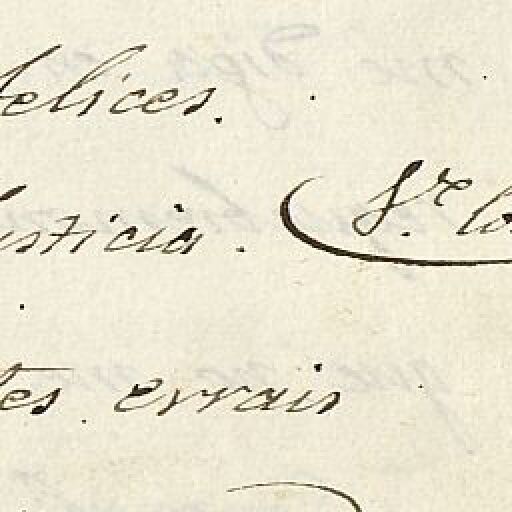 felices.
justicia. Sr. lo
tes errais